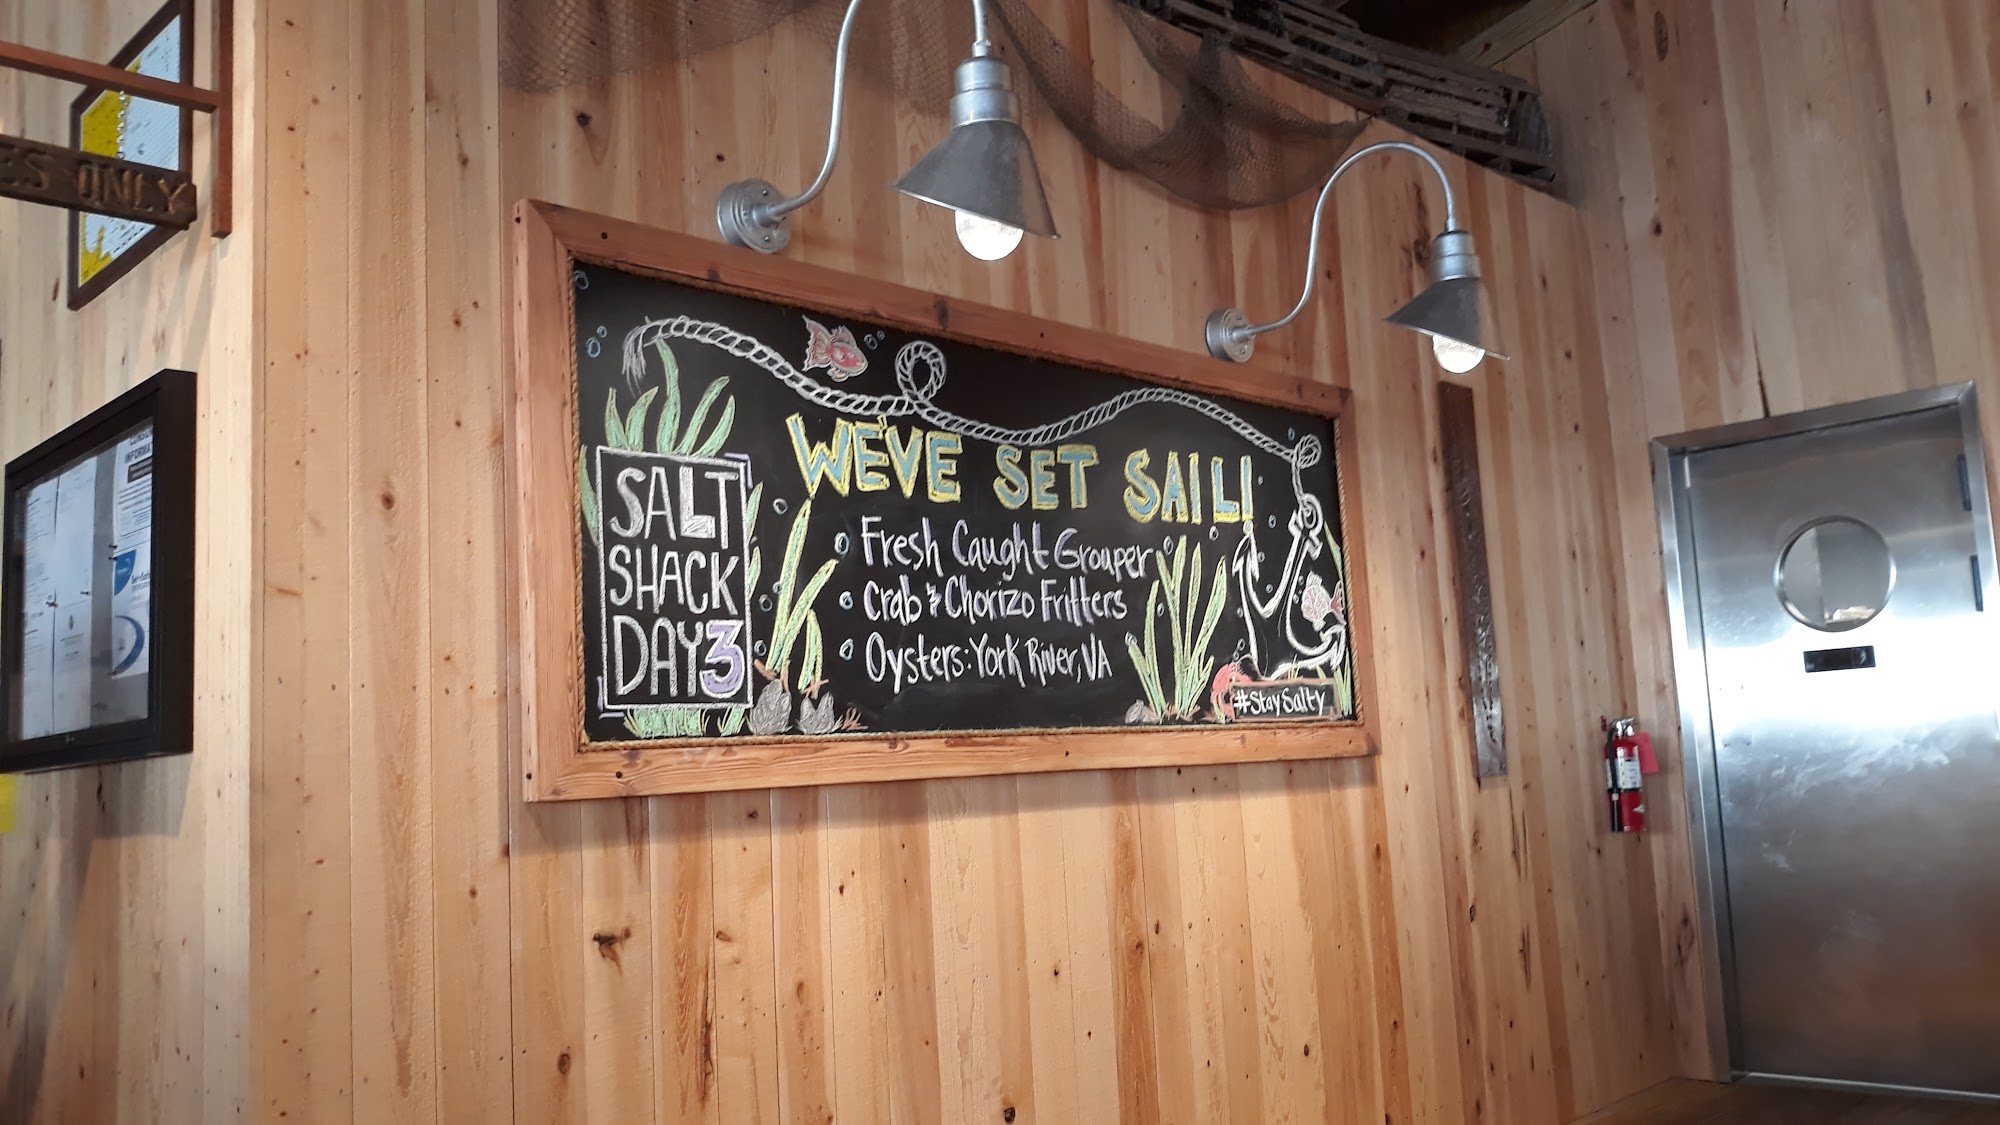 ES ONLY
SALT
SHACK
DAY 3
WE'VE SET SAIL!
Fresh Caught Grouper
Crab & Chorizo Fritters
Oysters: York River, VA
#StaySalty